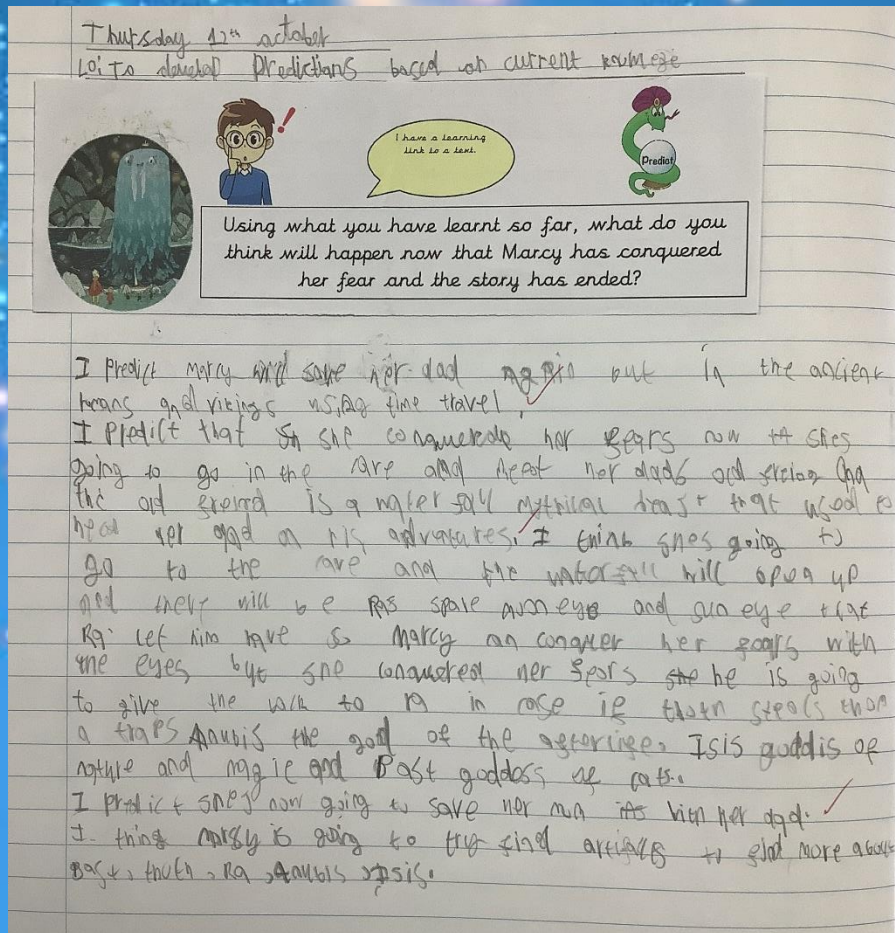 Thursday 12th october
LO: To develop Predictions based on current
I have a learning
link to a text.
Predict
Using what you have learnt so far, what do you
think will happen now that Marcy has conquered
her fear and the story has ended?
I Predict Marcy will save her dad again but in the ancient
romans and vikings using time travel.
I Predict that she conquered her fears now shes
going to go in the cave and meet her dads old
the old is a water fall mythical beast that used to
her dad on his adventures. I think shes going to
go to the cave and the waterfall will open up
and there will be Ras spare moon eye and sun eye that
Ra let him have so Marcy can conquer her fears with
the eyes but she conquered her fears he is going
to give the back to ra in case if thoth steals
a traps Anubis the god of the Isis goddis of
nature and magic and Bast goddess of cats.
I predict shes now going to save her mum with her dad.
I thing marcy is going to try find to find more about
Bast, thoth, Ra, Anubis, Isis.